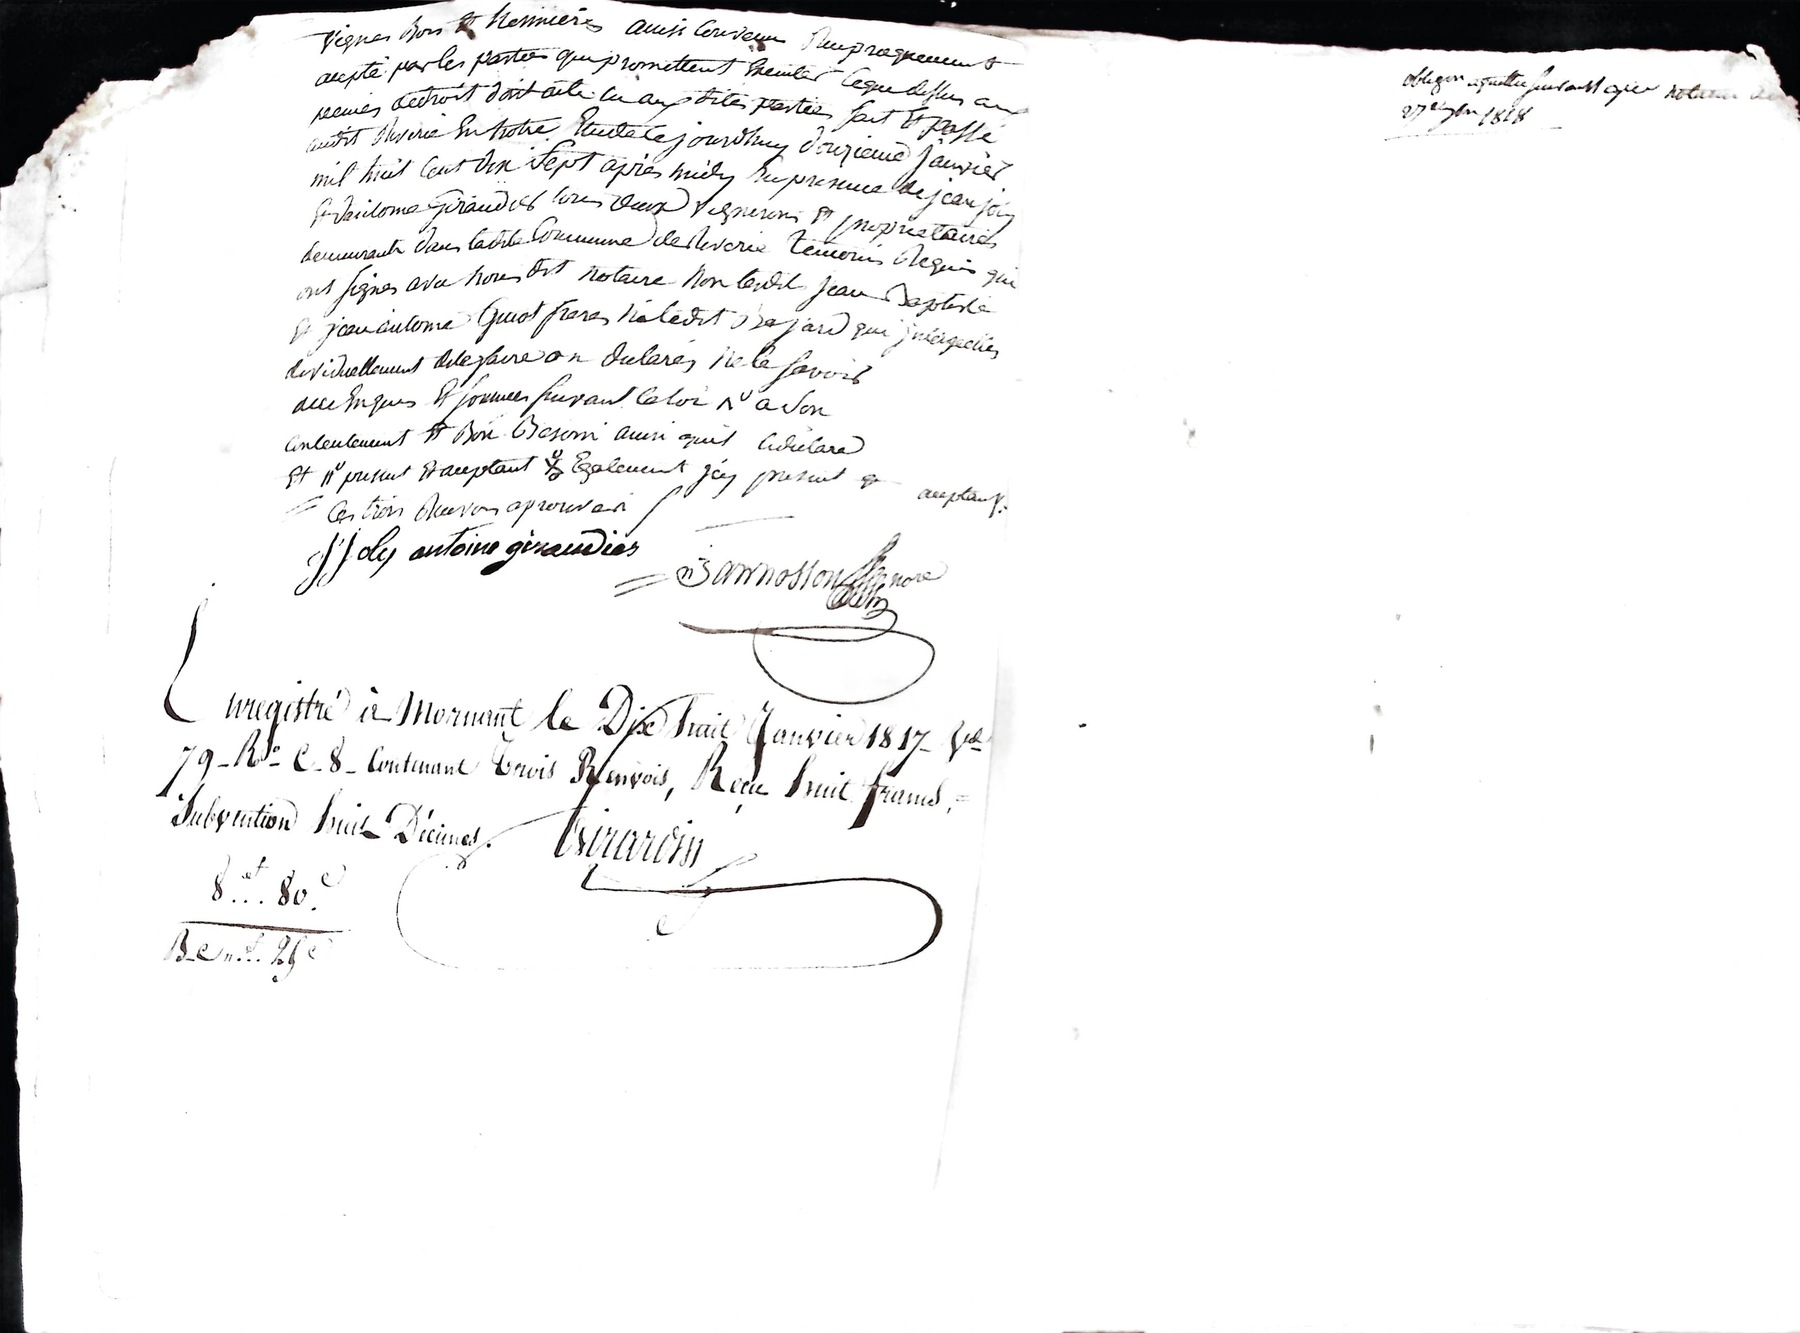 vignes Bois et ainsi convenu Reciproquement
accepté par les parties qui promettent Executer ceque dessus aux
peines de droit dont acte lu aux dites parties fait Et passé
audit Riverie En notre Etude ce jourdhuy douzieme janvier
mil huit cent dix Sept après midy En presence de jean joly
Et antoine Giraudier tous deux vignerons Et propriétaires
demeurants dans ladite Commune de Riverie Temoins Requis qui
ont signés avec nous dit notaire non lesdits jean Baptiste
Et jean antoine Guiot freres ni ledit Bajard qui
dividuellement de le faire on déclarés ne le savoir
suivant la loi nd a son
contentement Et Bon Besoin ainsi quil la déclaré
Et nd present Et acceptant Egalement jcy present et acceptant.
Ces trois Renvois aprouvés
J Joly antoine giraudier
Enregistré à Mornant le Dix huit Janvier 1817 vol
79 - Ro C. 8 - Contenant Trois Renvois, Reçu huit francs,
Subvention huit Décimes. Girardin
8... 80c
obligon aquittée suivant notaire
27 1818